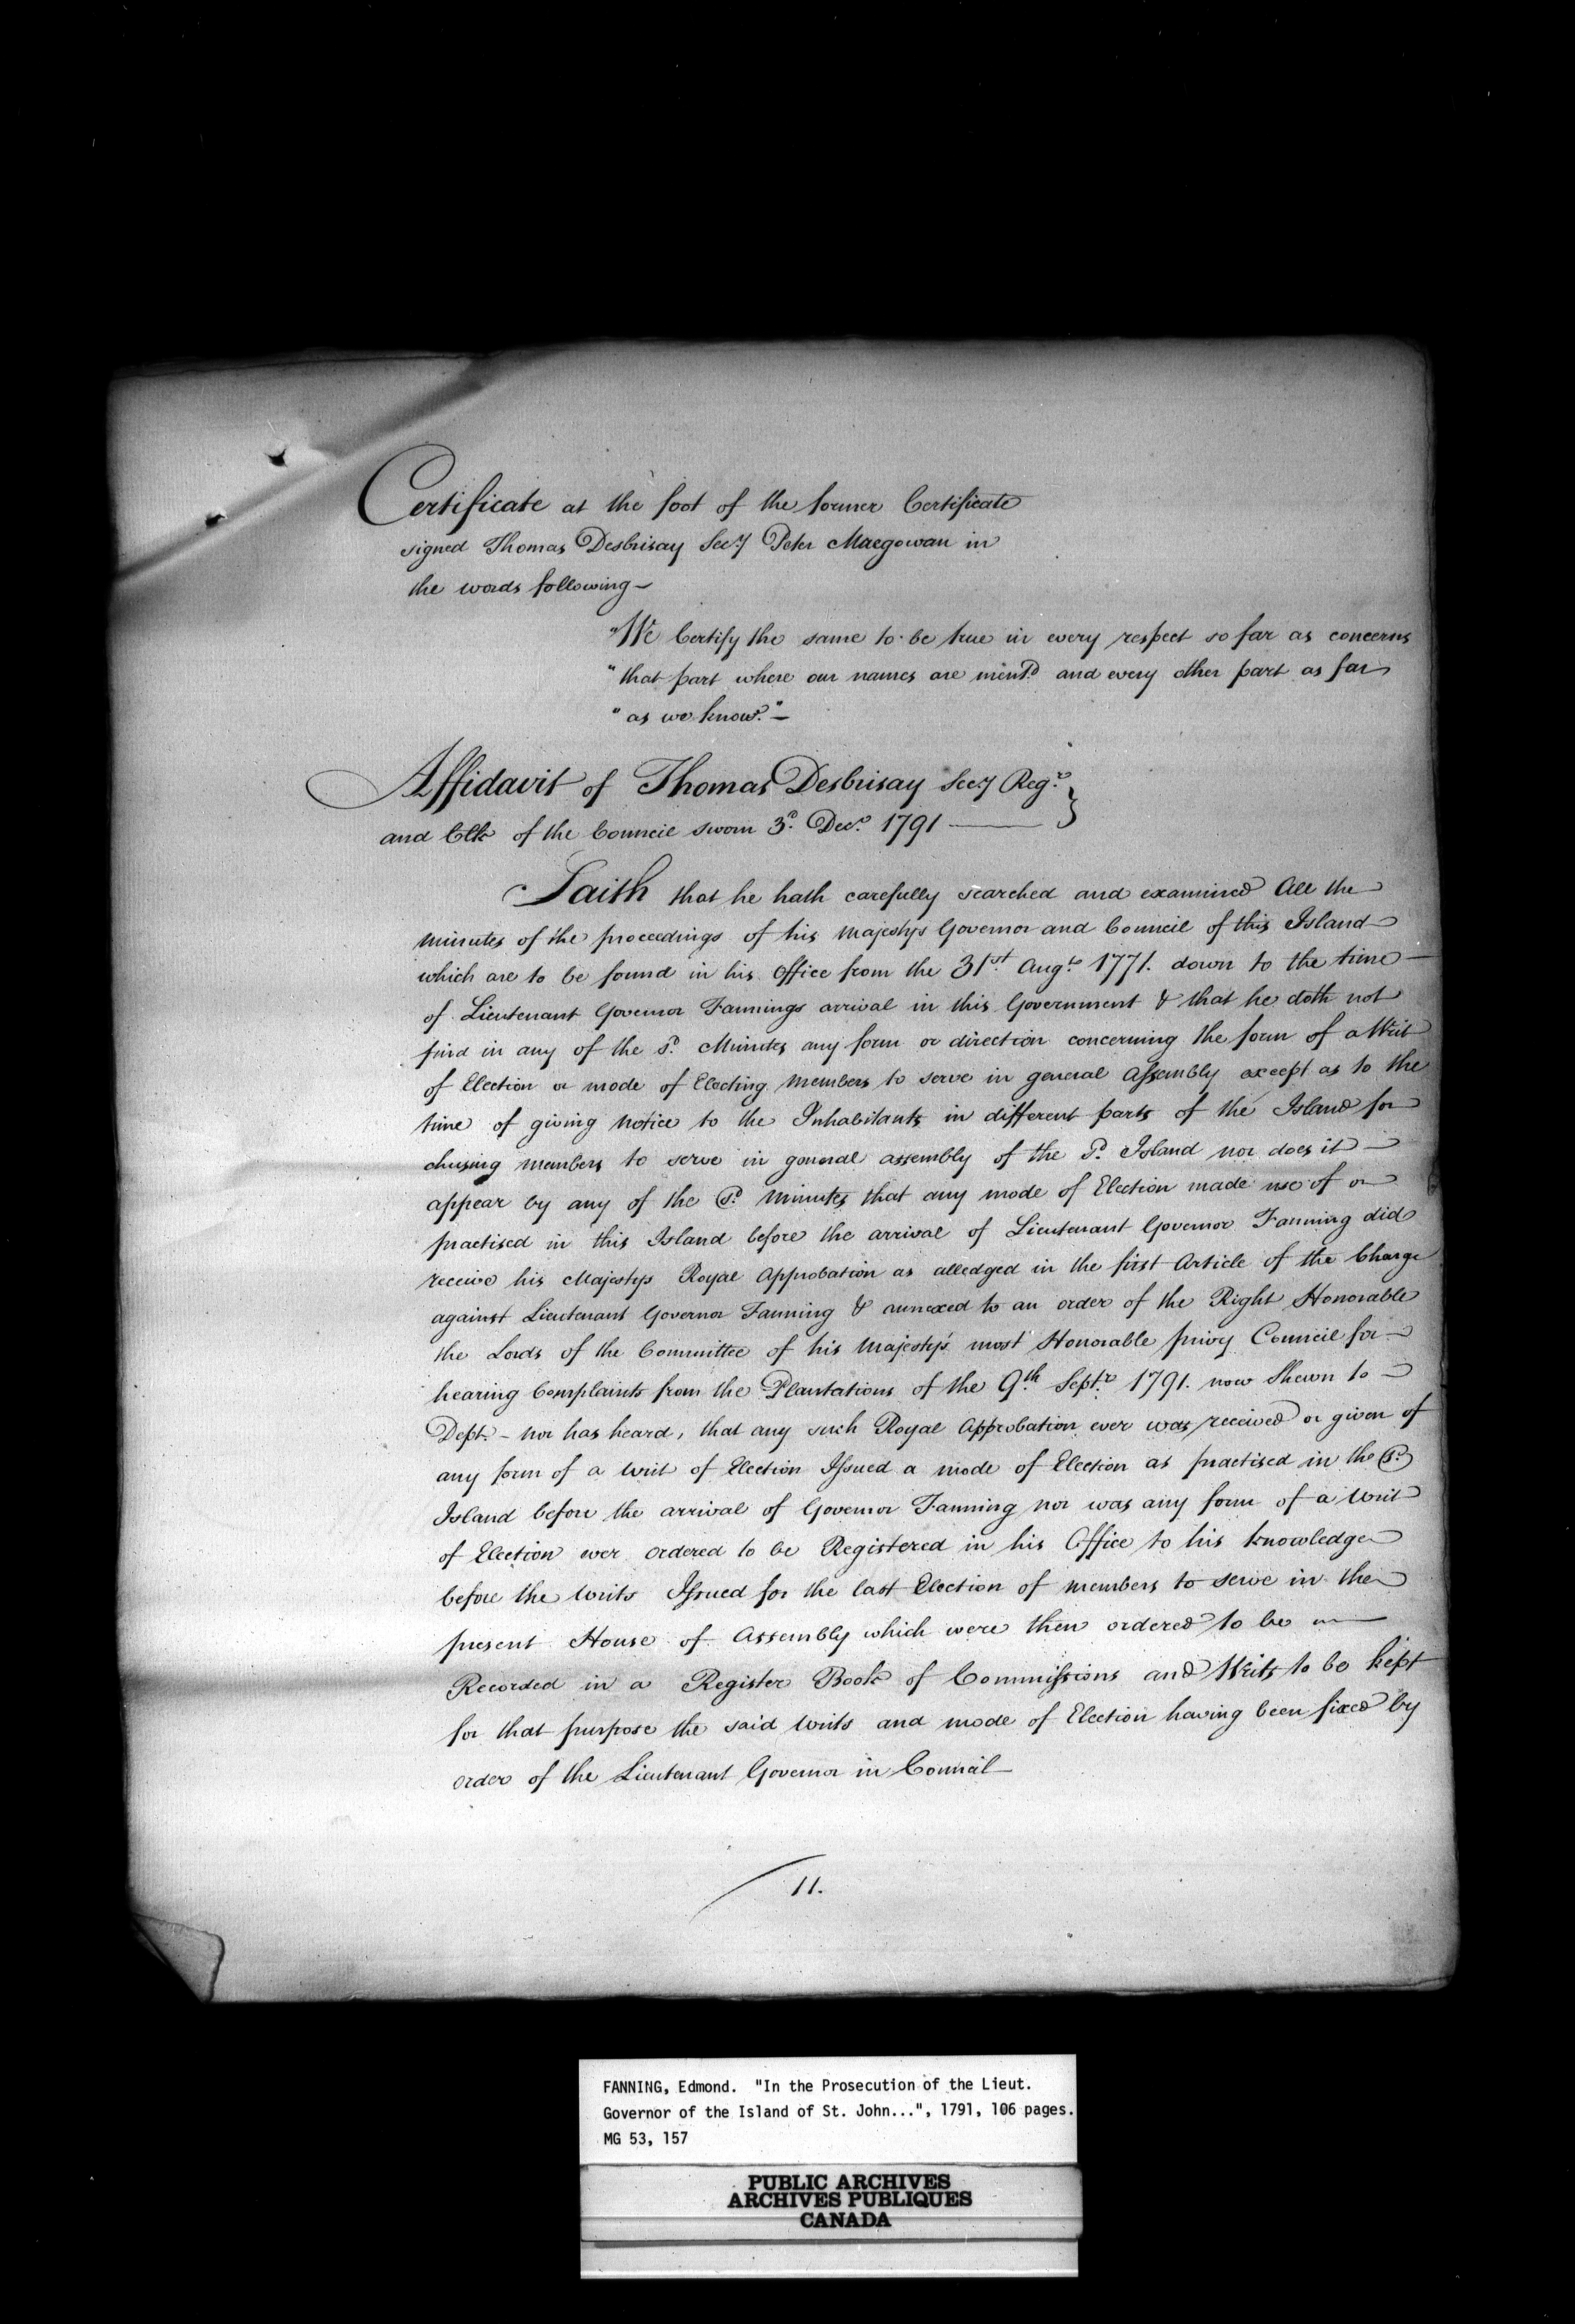 Certificate at the foot of the former Certificate
signed Thomas Desbrisay Secy Peter Macgowan in
the words following —
"We Certify the same to be true in every respect so far as concerns
"that part where our names are mentd and every other part as far
"as we know." —
Affidavit of Thomas Desbrisay Secy Regr
and Clk of the Council sworn 3d Decr 1791 —
Saith that he hath carefully searched and examined All the
minutes of the proceedings of his majestys Governor and Council of this Island
which are to be found in his office from the 31st Augt 1771. down to the time
of Lieutenant Governor Fannings arrival in this Government & that he doth not
find in any of the sd Minutes any form or direction concerning the form of a Writ
of Election or mode of Electing members to serve in general Assembly except as to the
time of giving notice to the Inhabitants in different parts of the Island for
chusing members to serve in general assembly of the sd Island nor does it —
appear by any of the sd minutes that any mode of Election made use of or
practised in this Island before the arrival of Lieutenant Governor Fanning did
receive his Majestys Royal Approbation as alledged in the first Article of the Charge
against Lieutenant Governor Fanning & annexed to an order of the Right Honorable
the Lords of the Committee of his Majesty's most Honorable privy Council for —
hearing Complaints from the Plantations of the 9th Septr 1791. now Shewn to —
Dept. – nor has heard, that any such Royal Approbation ever was received or given of
any form of a writ of Election Issued a mode of Election as practised in the sd
Island before the arrival of Governor Fanning nor was any form of a Writ
of Election ever ordered to be Registered in his Office to his knowledge
before the Writs Issued for the last Election of members to serve in the
present House of Assembly which were then ordered to be —
Recorded in a Register Book of Commissions and Writs to be kept
for that purpose the said Writs and mode of Election having been fixed by
order of the Lieutenant Governor in Council —
11.
FANNING, Edmond. "In the Prosecution of the Lieut.
Governor of the Island of St. John...", 1791, 106 pages.
MG 53, 157
PUBLIC ARCHIVES
ARCHIVES PUBLIQUES
CANADA